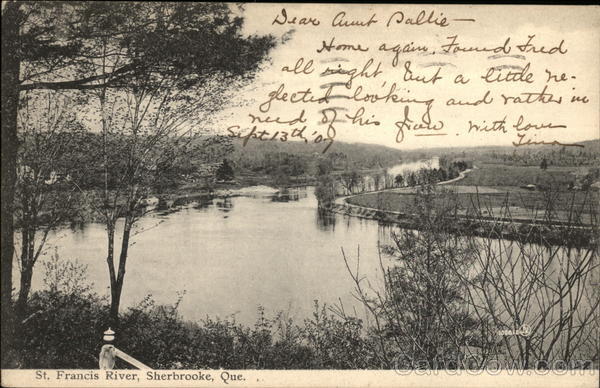 Dear Aunt Sallie —
Home again. Found Fred
all right, but a little ne-
glected looking and rather in
need of his frau. With love
Sept 13th '07
St. Francis River, Sherbrooke, Que.
CardCow.com